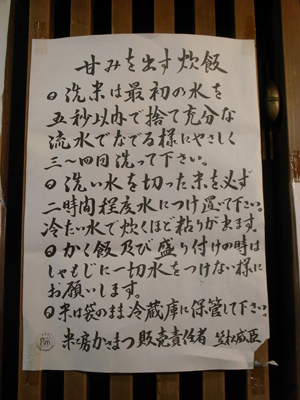 甘みを出す炊飯
◎洗米は最初の水を
五秒以内で捨て充分な
流水でなでる様にやさしく
三〜四回洗って下さい。
◎洗い水を切った米を必ず
二時間程度水につけ置いて下さい。
冷たい水で炊くほど粘りが出ます。
◎かく飯及び盛り付けの時は
しゃもじに一切水をつけない様に
お願いします。
◎米は袋のまま冷蔵庫に保管して下さい。
米工房かさまつ 販売責任者 笠松